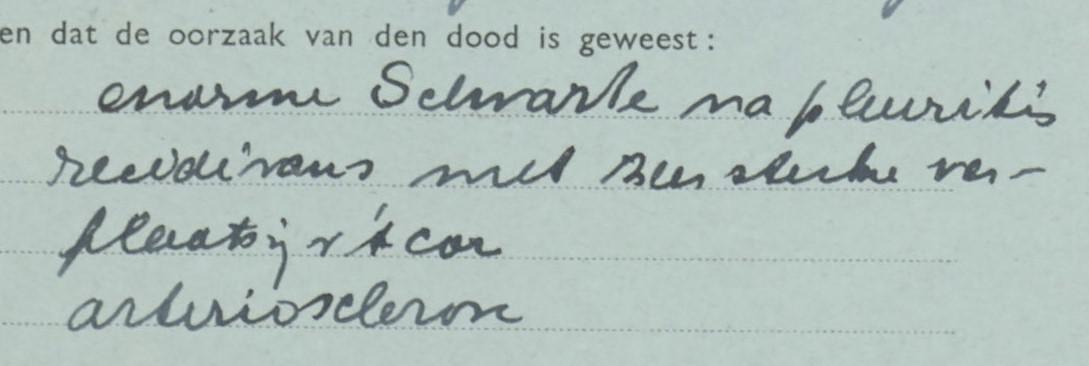 en dat de oorzaak van den dood is geweest:
enorme Schwarte na pleuritis
recidivans met zeer sterke ver-
plaatsg v 't cor
arteriosclerose